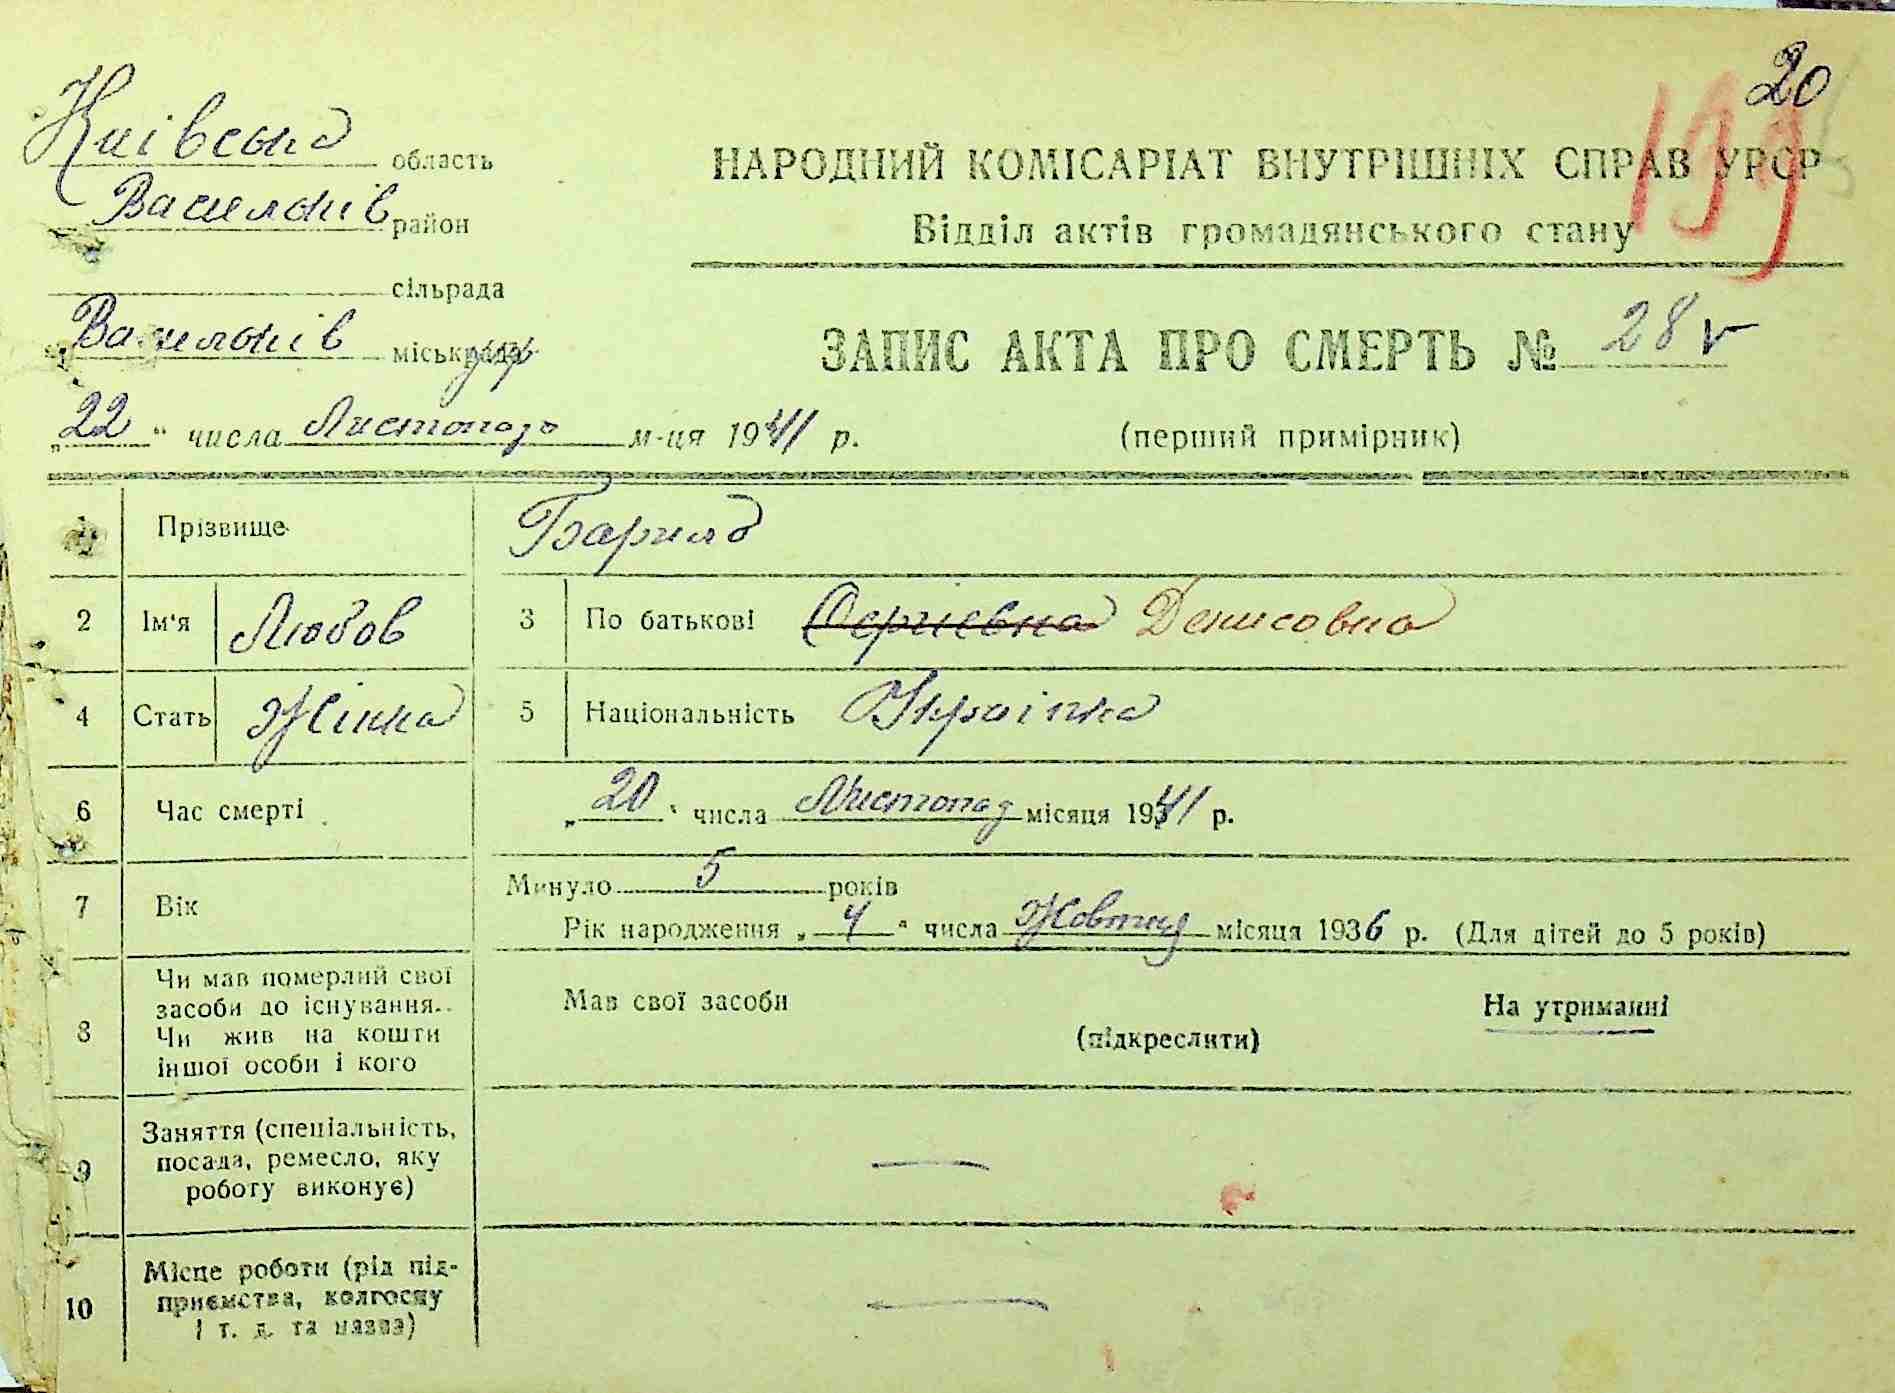 20
199
Київська область
Васильків район
сільрада
Васильків міськрада
НАРОДНИЙ КОМІСАРІАТ ВНУТРІШНІХ СПРАВ УРСР
Відділ актів громадянського стану
ЗАПИС АКТА ПРО СМЕРТЬ № 28
(перший примірник)
„22“ числа Листопада м-ця 1941 р.
1 Прізвище Барило
2 Ім'я Любов 3 По батькові Сергієвна Денисовна
4 Стать Жінка 5 Національність Українка
6 Час смерті „20“ числа Листопад місяця 1941 р.
7 Вік Минуло 5 років
Рік народження „4“ числа Жовтня місяця 1936 р. (Для дітей до 5 років)
8 Чи мав померлий свої
засоби до існування..
Чи жив на кошти
іншої особи і кого
Мав свої засоби На утриманні
(підкреслити)
9 Заняття (спеціальність,
посада, ремесло, яку
роботу виконує) —
10 Місце роботи (рід під-
приємства, колгоспу
і т. д. та назва) —